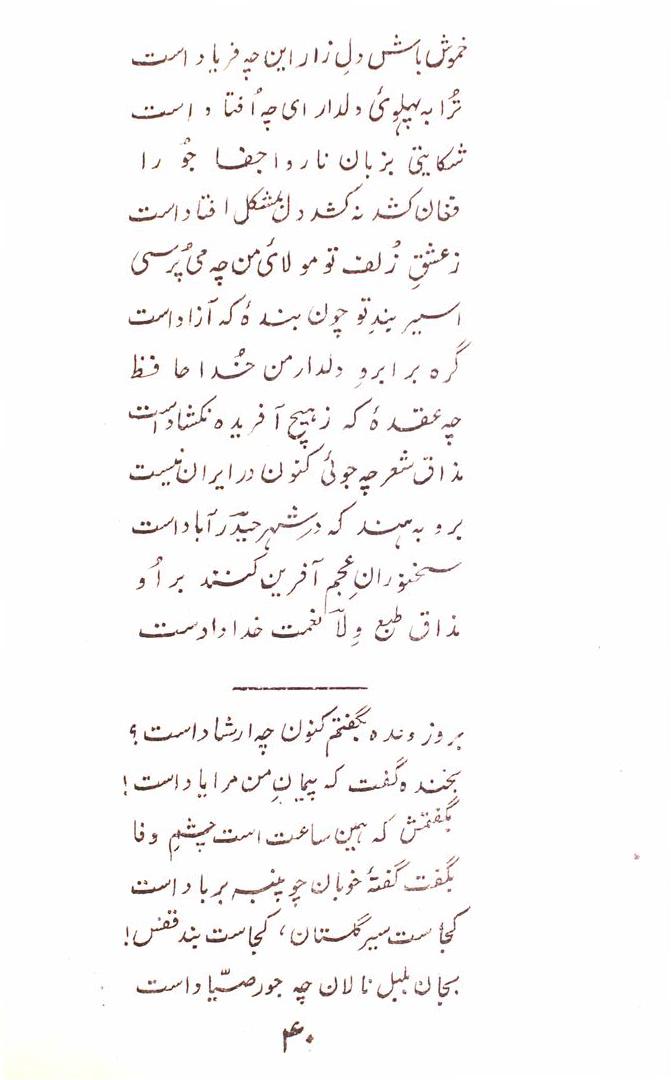 خموش باش دلِ زار این چه فریاد است
تُرا به پهلوئ دلدار ای چه اُفتاد است
شکایتی بزبان ناروا جفا جُو را
فغان کشد نه کشد دل بمشکل افتاد است
زعشقِ زُلف تو مولائ من چه می پُرسی
اسیر بندِ تو چون بندۂ که آزاد است
گره بر ابروِ دلدار من خُدا حافظ
چه عقدۂ که ز هیچ آفریده نکشاد است
مذاق شعر چه جوئی کنون در ایران نیست
برو به هند که در شهر حیدرآباد است
سخنورانِ عجم آفرین کنند بر اُو
مذاق طبع وِلاؔ نعمت خدا دادست
بروز وعده بگفتم کنون چه ارشاد است؟
بخنده گفت که پیمانِ من مرا یاد است!
بگفتمش که همین ساعت است چشمِ وفا
بگفت گفتۂ خوبان چو پنبه برباد است
کجاست سیر گلستان، کجاست بند قفس!
بجان بلبل نالان چه جور صیّاد است
۴۰